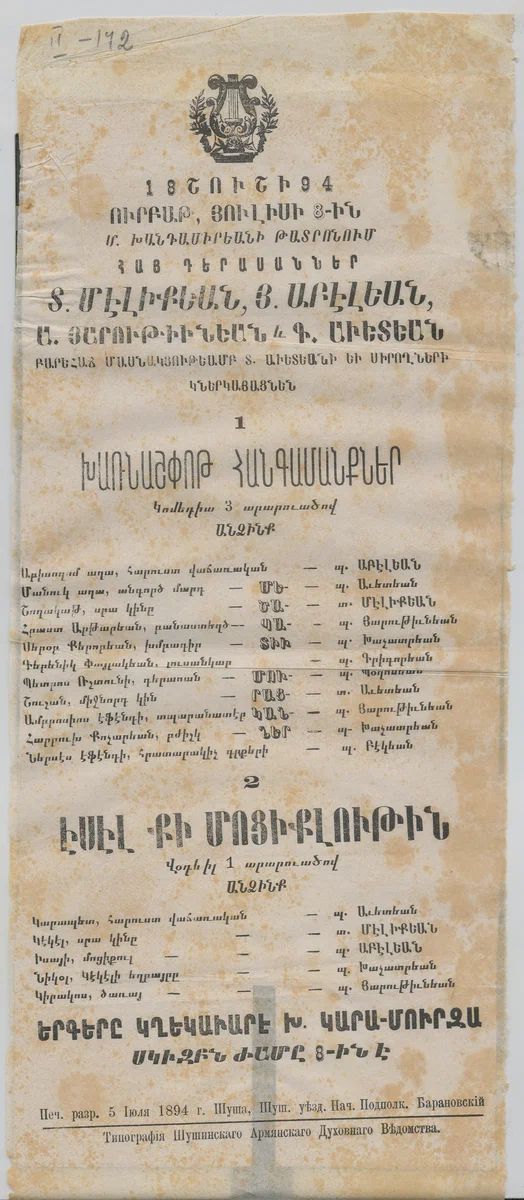 II - 172
18 ՇՈՒՇԻ 94
ՈՒՐԲԱԹ, ՅՈՒԼԻՍԻ 8-ԻՆ
Մ. ԽԱՆԴԱՄԻՐԵԱՆԻ ԹԱՏՐՈՆՈՒՄ
ՀԱՅ ԴԵՐԱՍԱՆՆԵՐ
Տ. ՄԷԼԻՔԵԱՆ, Յ. ԱԲԷԼԵԱՆ,
Ա. ՅԱՐՈՒԹԻՒՆԵԱՆ և Գ. ԱՒԵՏԵԱՆ
ԲԱՐԵՀԱՃ ՄԱՍՆԱԿՑՈՒԹԵԱՄԲ Տ. ԱՒԵՏԵԱՆԻ ԵՒ ՍԻՐՈՂՆԵՐԻ
ԿՆԵՐԿԱՅԱՑՆԵՆ
1
ԽԱՌՆԱՇՓՈԹ ՀԱՆԳԱՄԱՆՔՆԵՐ
Կոմեդիա 3 արարուածով
ԱՆՁԻՆՔ
աղա, հարուստ վաճառական — պ. ԱԲԷԼԵԱՆ
Մանուկ աղա, անգործ մարդ — ՄԵ- — պ. Աւետեան
Շողակաթ, սրա կինը — ԾԱ- — տ. ՄԷԼԻՔԵԱՆ
Հրաստ Արթարեան, բանաստեղծ — ՊԱ- — պ. Յարութիւնեան
Սերօբ Քերորեան, խմբադիր — ՏԻՒ — պ. Խաչատրեան
Գերենիկ Փայլակեան, լուսանկար — պ. Գրիգորեան
Պետրոս Ռշտունի, դերասան — ՄՈՒ- — պ. Պօղոսեան
Շուշան, միջնորդ կին — ՐԱՑ- — տ. Աւետեան
Ամբրոսիոս էֆէնդի, տպարանատէր ԿԱՆ- — պ. Յարութիւնեան
Հարրուխ Քոչարեան, բժիշկ — ՆԵՐ — պ. Խաչատրեան
Ներսէս էֆէնդի, հրատարակիչ գրքերի — պ. Բէկեան
2
ԷՍԷԼ ՔԻ ՄՈՑԻՔԼՈՒԹԻՆ
Վօդևիլ 1 արարուածով
ԱՆՁԻՆՔ
Կարապետ, հարուստ վաճառական — պ. Աւետեան
Կէկէլ, սրա կինը — տ. ՄԷԼԻՔԵԱՆ
Իսայի, մոցիքուլ — — պ. ԱԲԷԼԵԱՆ
Նիկօլ, Կէկէլի եղբայրը — պ. Խաչատրեան
Կիրակոս, ծառայ — — — պ. Յարութիւնեան
ԵՐԳԵՐԸ ԿՂԵԿԱՎԱՐԷ Խ. ԿԱՐԱ-ՄՈՒՐԶԱ
ՍԿԻԶԲՆ ԺԱՄԸ 8-ԻՆ Է
Печ. разр. 5 Іюля 1894 г. Шуша, Шуш. уѣзд. Нач. Подполк. Барановскій
Типографія Шушинскаго Армянскаго Духовнаго Вѣдомства.